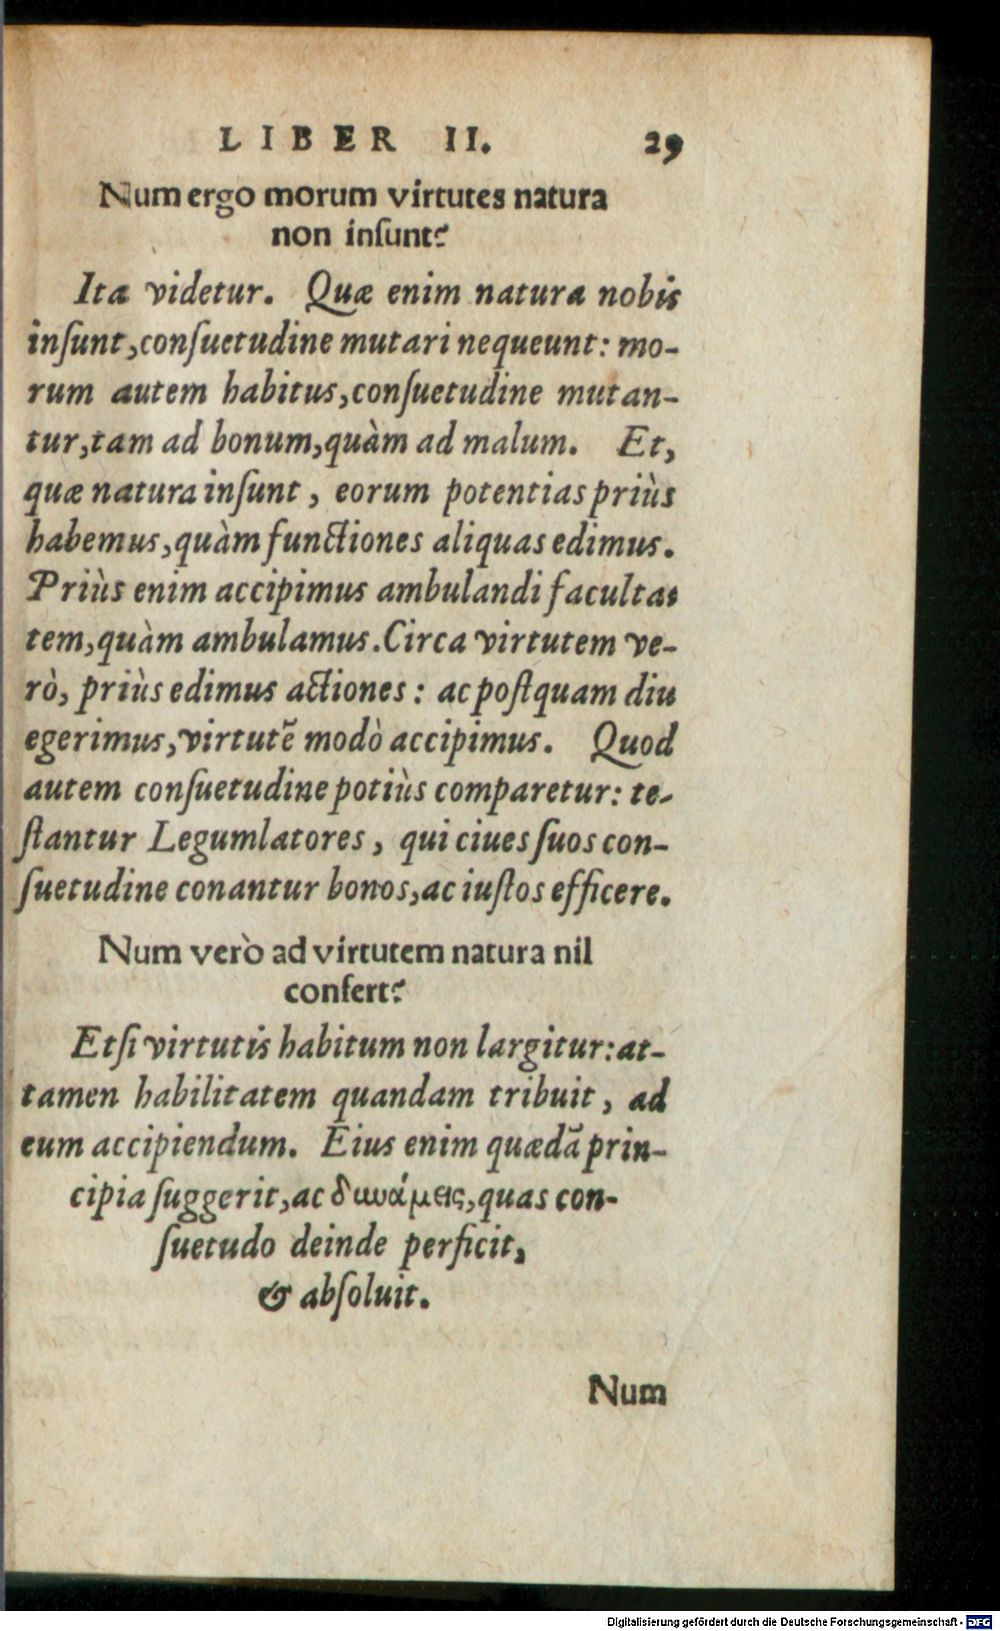 LIBER II. 29
Num ergo morum virtutes natura
non inſunt?
Ita videtur. Quæ enim natura nobis
inſunt, conſuetudine mutari nequeunt: mo-
rum autem habitus, conſuetudine mutan-
tur, tam ad bonum, quàm ad malum. Et,
quæ natura inſunt, eorum potentias priùs
habemus, quàm functiones aliquas edimus.
Priùs enim accipimus ambulandi faculta-
tem, quàm ambulamus. Circa virtutem ve-
rò, priùs edimus actiones: ac poſtquam diu
egerimus, virtutē modò accipimus. Quod
autem conſuetudine potiùs comparetur: te-
ſtantur Legumlatores, qui ciues ſuos con-
ſuetudine conantur bonos, ac iuſtos efficere.
Num verò ad virtutem natura nil
confert?
Etſi virtutis habitum non largitur: at-
tamen habilitatem quandam tribuit, ad
eum accipiendum. Eius enim quædā prin-
cipia ſuggerit, ac δυνάμεις, quas con-
ſuetudo deinde perficit,
& abſoluit.
Num
Digitalisierung gefördert durch die Deutsche Forschungsgemeinschaft - DFG